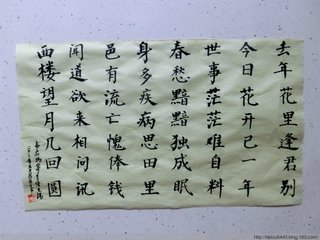 去年花里逢君别
今日花开已一年
世事茫茫难自料
春愁黯黯独成眠
身多疾病思田里
邑有流亡愧俸钱
闻道欲来相问讯
西楼望月几回圆